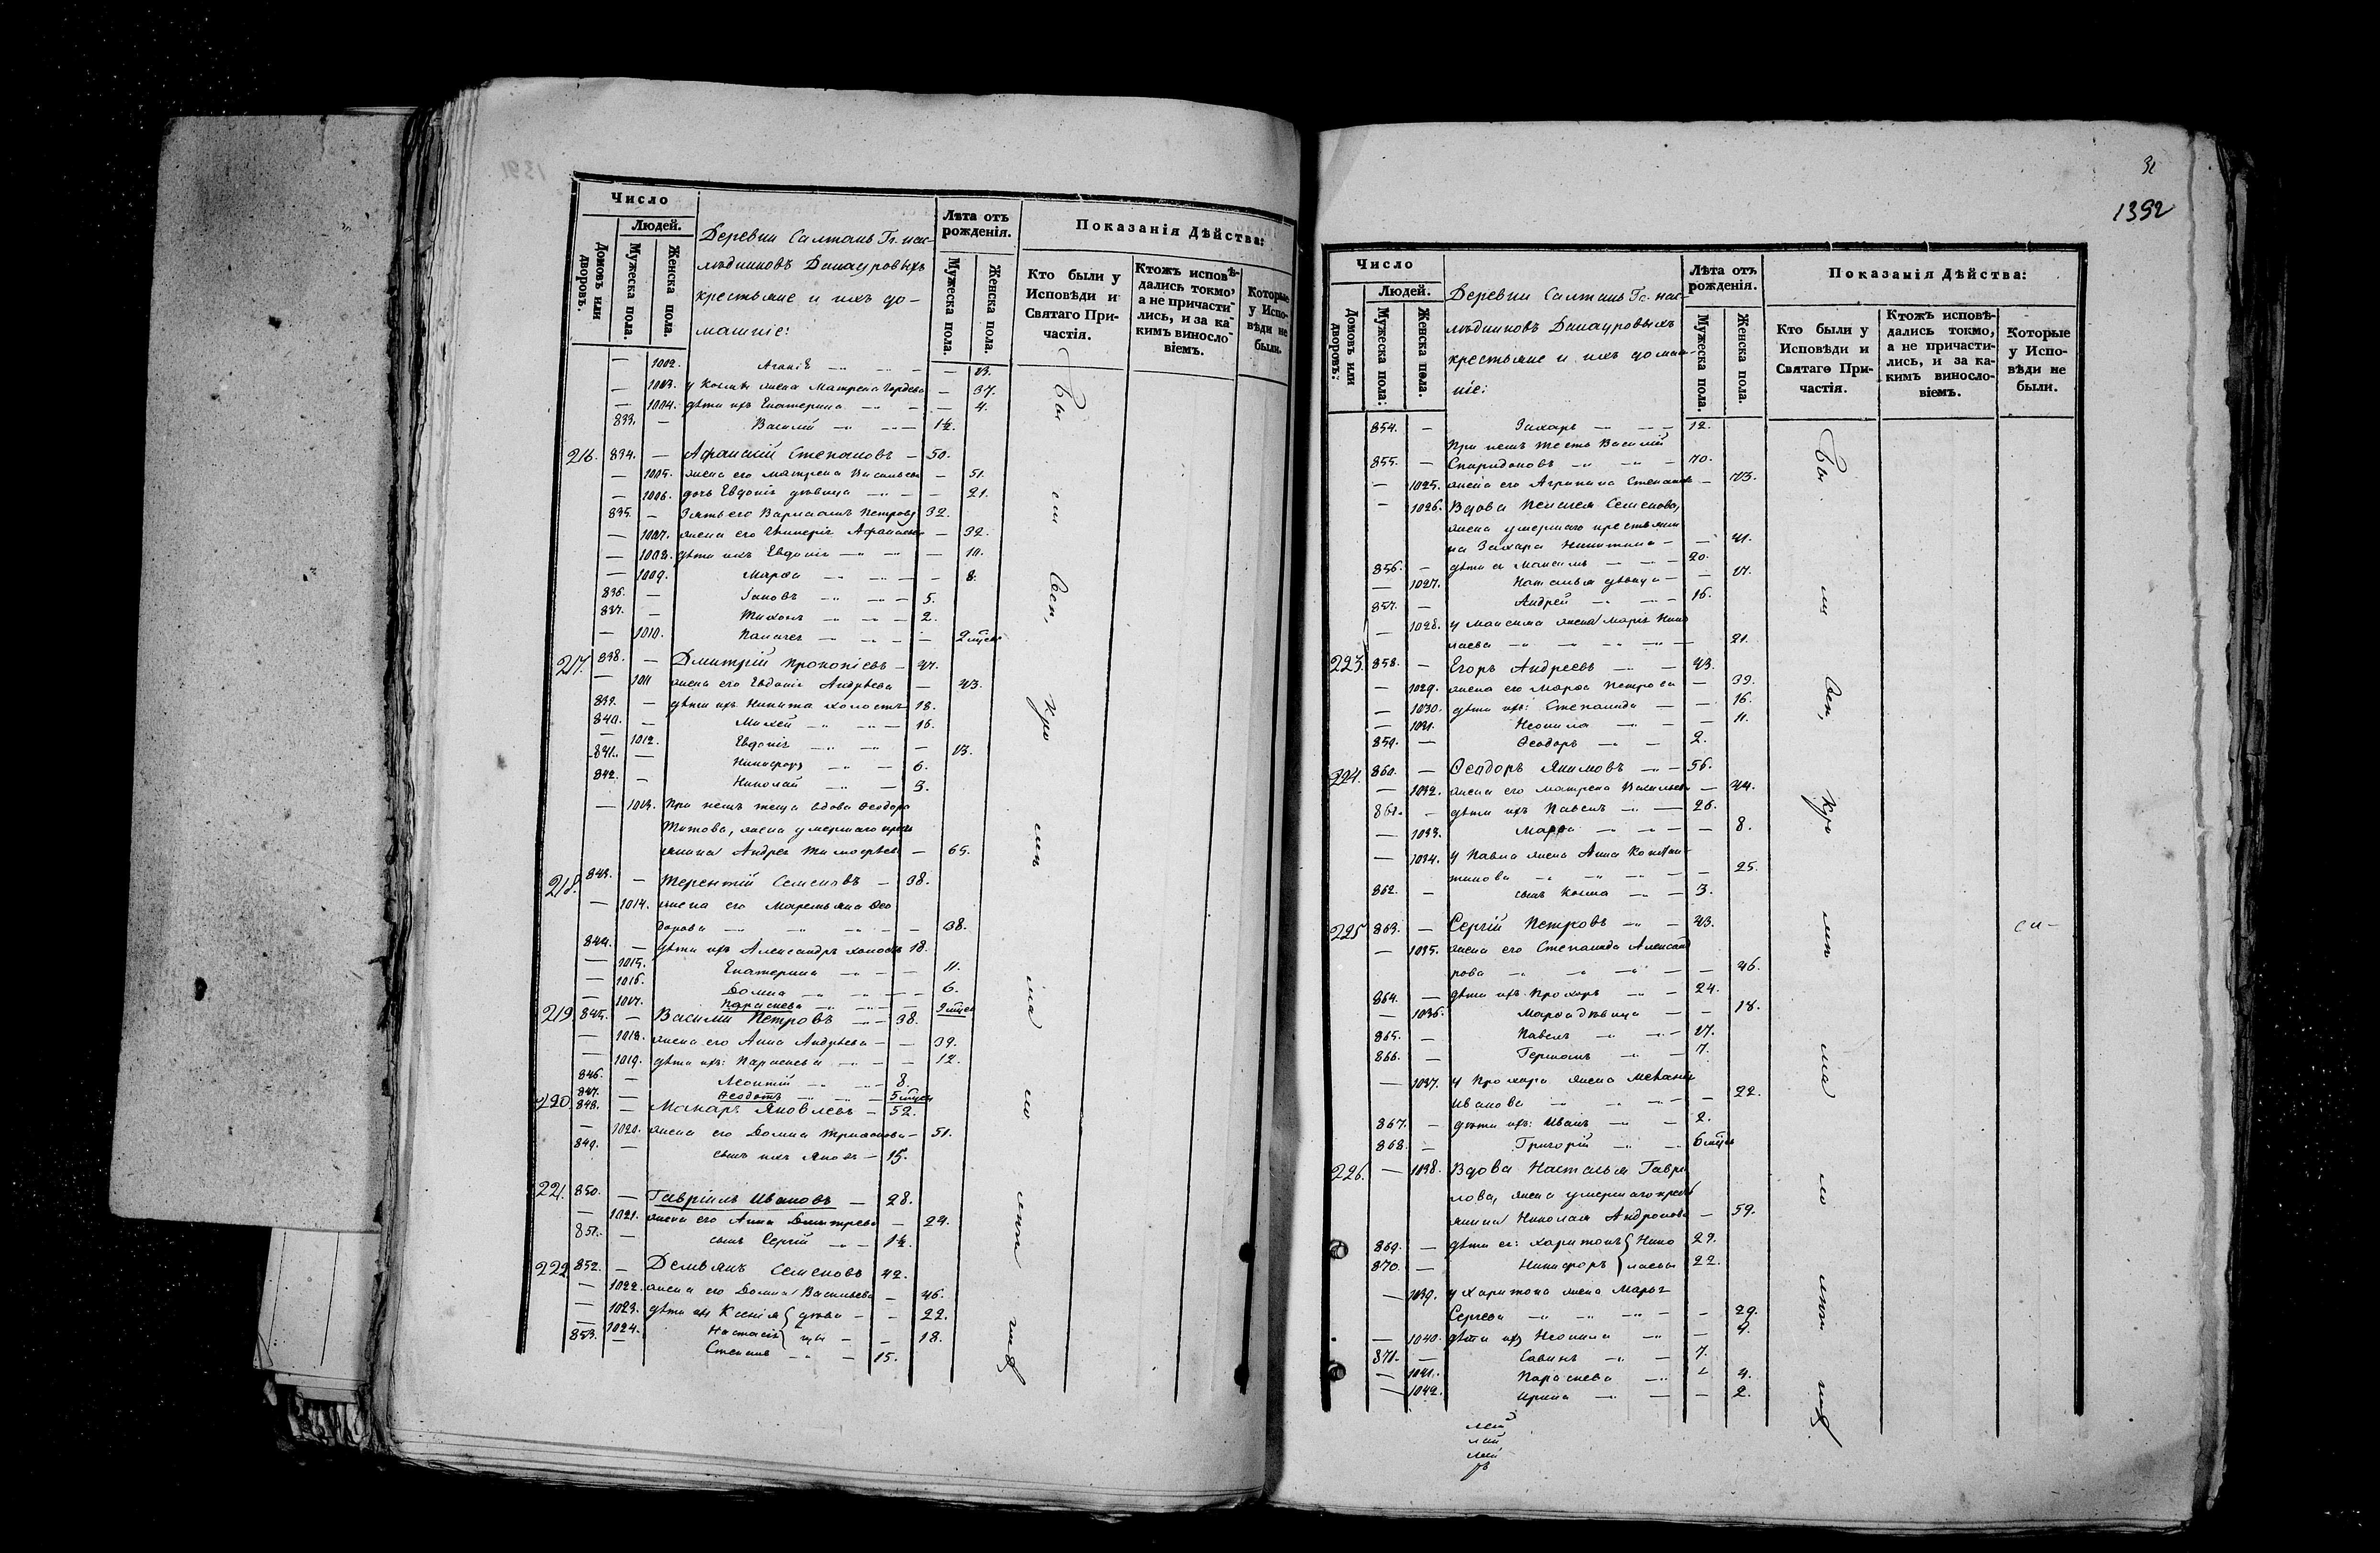 Число
Людей.
Домовъ или дворовъ.
Мужеска пола.
Женска пола.
Деревни Салтанъ Гг. нас-
лѣдниковъ Данауровыхъ
крестьяне и ихъ до-
машніе:
Лѣта отъ рожденія.
Мужеска пола.
Женска пола.
Показанія Дѣйства:
Кто были у Исповѣди и Святаго Причастія.
Ктожъ исповѣдались токмо, а не причастились, и за какимъ винословіемъ.
Которые у Исповѣди не были.
— 1002. Агапія — 13.
— 1003. у Космы жена Матрена Гордѣева — 37.
— 1004. дѣти ихъ Екатерина — 4.
833. — Василій 1½.
216. 834. — Афанасій Степановъ — 50.
— 1005. жена его Матрена Васильева — 51.
— 1006. дочь Евдокія дѣвица — 21.
835. — Зять его Варлаамъ Петровъ 32.
— 1007. жена его Гликерія Афанасьева — 32.
— 1008. дѣти ихъ Евдокія — 10.
— 1009. Марѳа — 8.
836. — Іаковъ 5.
837. — Тихонъ 2.
— 1010. Пелагея — 2 мѣсяц
217. 838. — Дмитрій Прокопіевъ — 47.
— 1011 жена его Евдокія Андрѣева — 43.
839. — дѣти ихъ Никита холостъ 18.
840. — Михей 16.
— 1012. Евдокія — 13.
841. — Никифоръ 6.
842. — Николай 3.
— 1013. При немъ теща вдова Ѳеодора
Титова, жена умершаго кресть
янина Андрея Тимофѣева — 65.
218. 843. — Терентій Семеновъ — 38.
— 1014. жена его Маремьяна Ѳео
дорова — 38.
844. — дѣти ихъ Александръ холостъ 18.
— 1015. Екатерина — 11.
— 1016. Домна — 6.
— 1017. Параскева — 9 мѣсяц
219. 845. — Василій Петровъ — 38.
— 1018. жена его Анна Андрѣева — 39.
— 1019. дѣти ихъ: Параскева — 12.
846. — Леонтій 8.
847. — Ѳеодотъ 5 мѣсяц
220. 848. — Макаръ Яковлевъ — 52.
— 1020. жена его Домна Трифонова — 51.
849. — сынъ ихъ Яковъ — 15.
221. 850. — Гавріилъ Ивановъ — 28.
— 1021. жена его Анна Дмитрева — 24.
851. — сынъ Сергій 1½.
222 852. — Демьянъ Семеновъ 42.
— 1022. жена его Домна Васильева — 46.
— 1023. дѣти ихъ Ксенія } дѣви — 22.
— 1024. Настасія } цы — 18.
853. — Степанъ 15.
Бы ли Вси, Кро мѣ ма ло лѣт нихъ
32
1392
Число
Людей.
Домовъ или дворовъ.
Мужеска пола.
Женска пола.
Деревни Салтанъ Гг. нас-
лѣдниковъ Данауровыхъ
крестьяне и ихъ домаш-
ніе:
Лѣта отъ рожденія.
Мужеска пола.
Женска пола.
Показанія Дѣйства:
Кто были у Исповѣди и Святаго Причастія.
Ктожъ исповѣдались токмо, а не причастились, и за какимъ винословіемъ.
Которые у Исповѣди не были.
854. — Захаръ 12.
При немъ тесть Василій
855. — Спиридоновъ 70.
— 1025. жена его Агрипина Степанова — 73.
— 1026. Вдова Пелагея Семенова,
жена умершаго крестьяни
на Захара Никитина — 41.
856. — дѣти ея Максимъ 20.
— 1027. Наталья дѣвица — 17.
857. — Андрей 16.
— 1028. у Максима жена Марія Нико
лаева — 21.
223. 858. — Егоръ Андреевъ 43.
— 1029. жена его Марѳа Петрова — 39.
— 1030. дѣти ихъ: Степанида — 16.
— 1031. Неонила — 11.
859. — Ѳеодоръ 2.
224. 860. — Ѳеодоръ Якимовъ 56.
— 1032. жена его Матрена Васильева — 44.
861. — дѣти ихъ Павелъ 26.
— 1033. Марѳа — 8.
— 1034. у Павла жена Анна Констан-
тинова — 25.
862. — сынъ Косма 3.
225 863. — Сергій Петровъ 43.
— 1035. жена его Степанида Александ
рова — 46.
864. — дѣти ихъ Прохоръ 24.
— 1036. Марѳа дѣвица — 18.
865. — Павелъ 17.
866. — Германъ 7.
— 1037. у Прохора жена Меланія
Иванова — 22.
867. — дѣти ихъ: Иванъ 2.
868. — Григорій 6 мѣсяц
226. — 1038. Вдова Наталья Гаври
лова, жена умершаго кресть
янина Николая Андронова — 59.
869. — дѣти ея: Харитонъ } Нико 29.
870. — Никифоръ } лаевы 22.
— 1039. у Харитона жена Марья
Сергѣева — 29.
— 1040. дѣти ихъ Неонила — 9.
871. — Савинъ 7.
— 1041. Параскева — 4.
— 1042. Ирина — 2.
Бы ли Вси, Кро мѣ ма ло лѣт нихъ